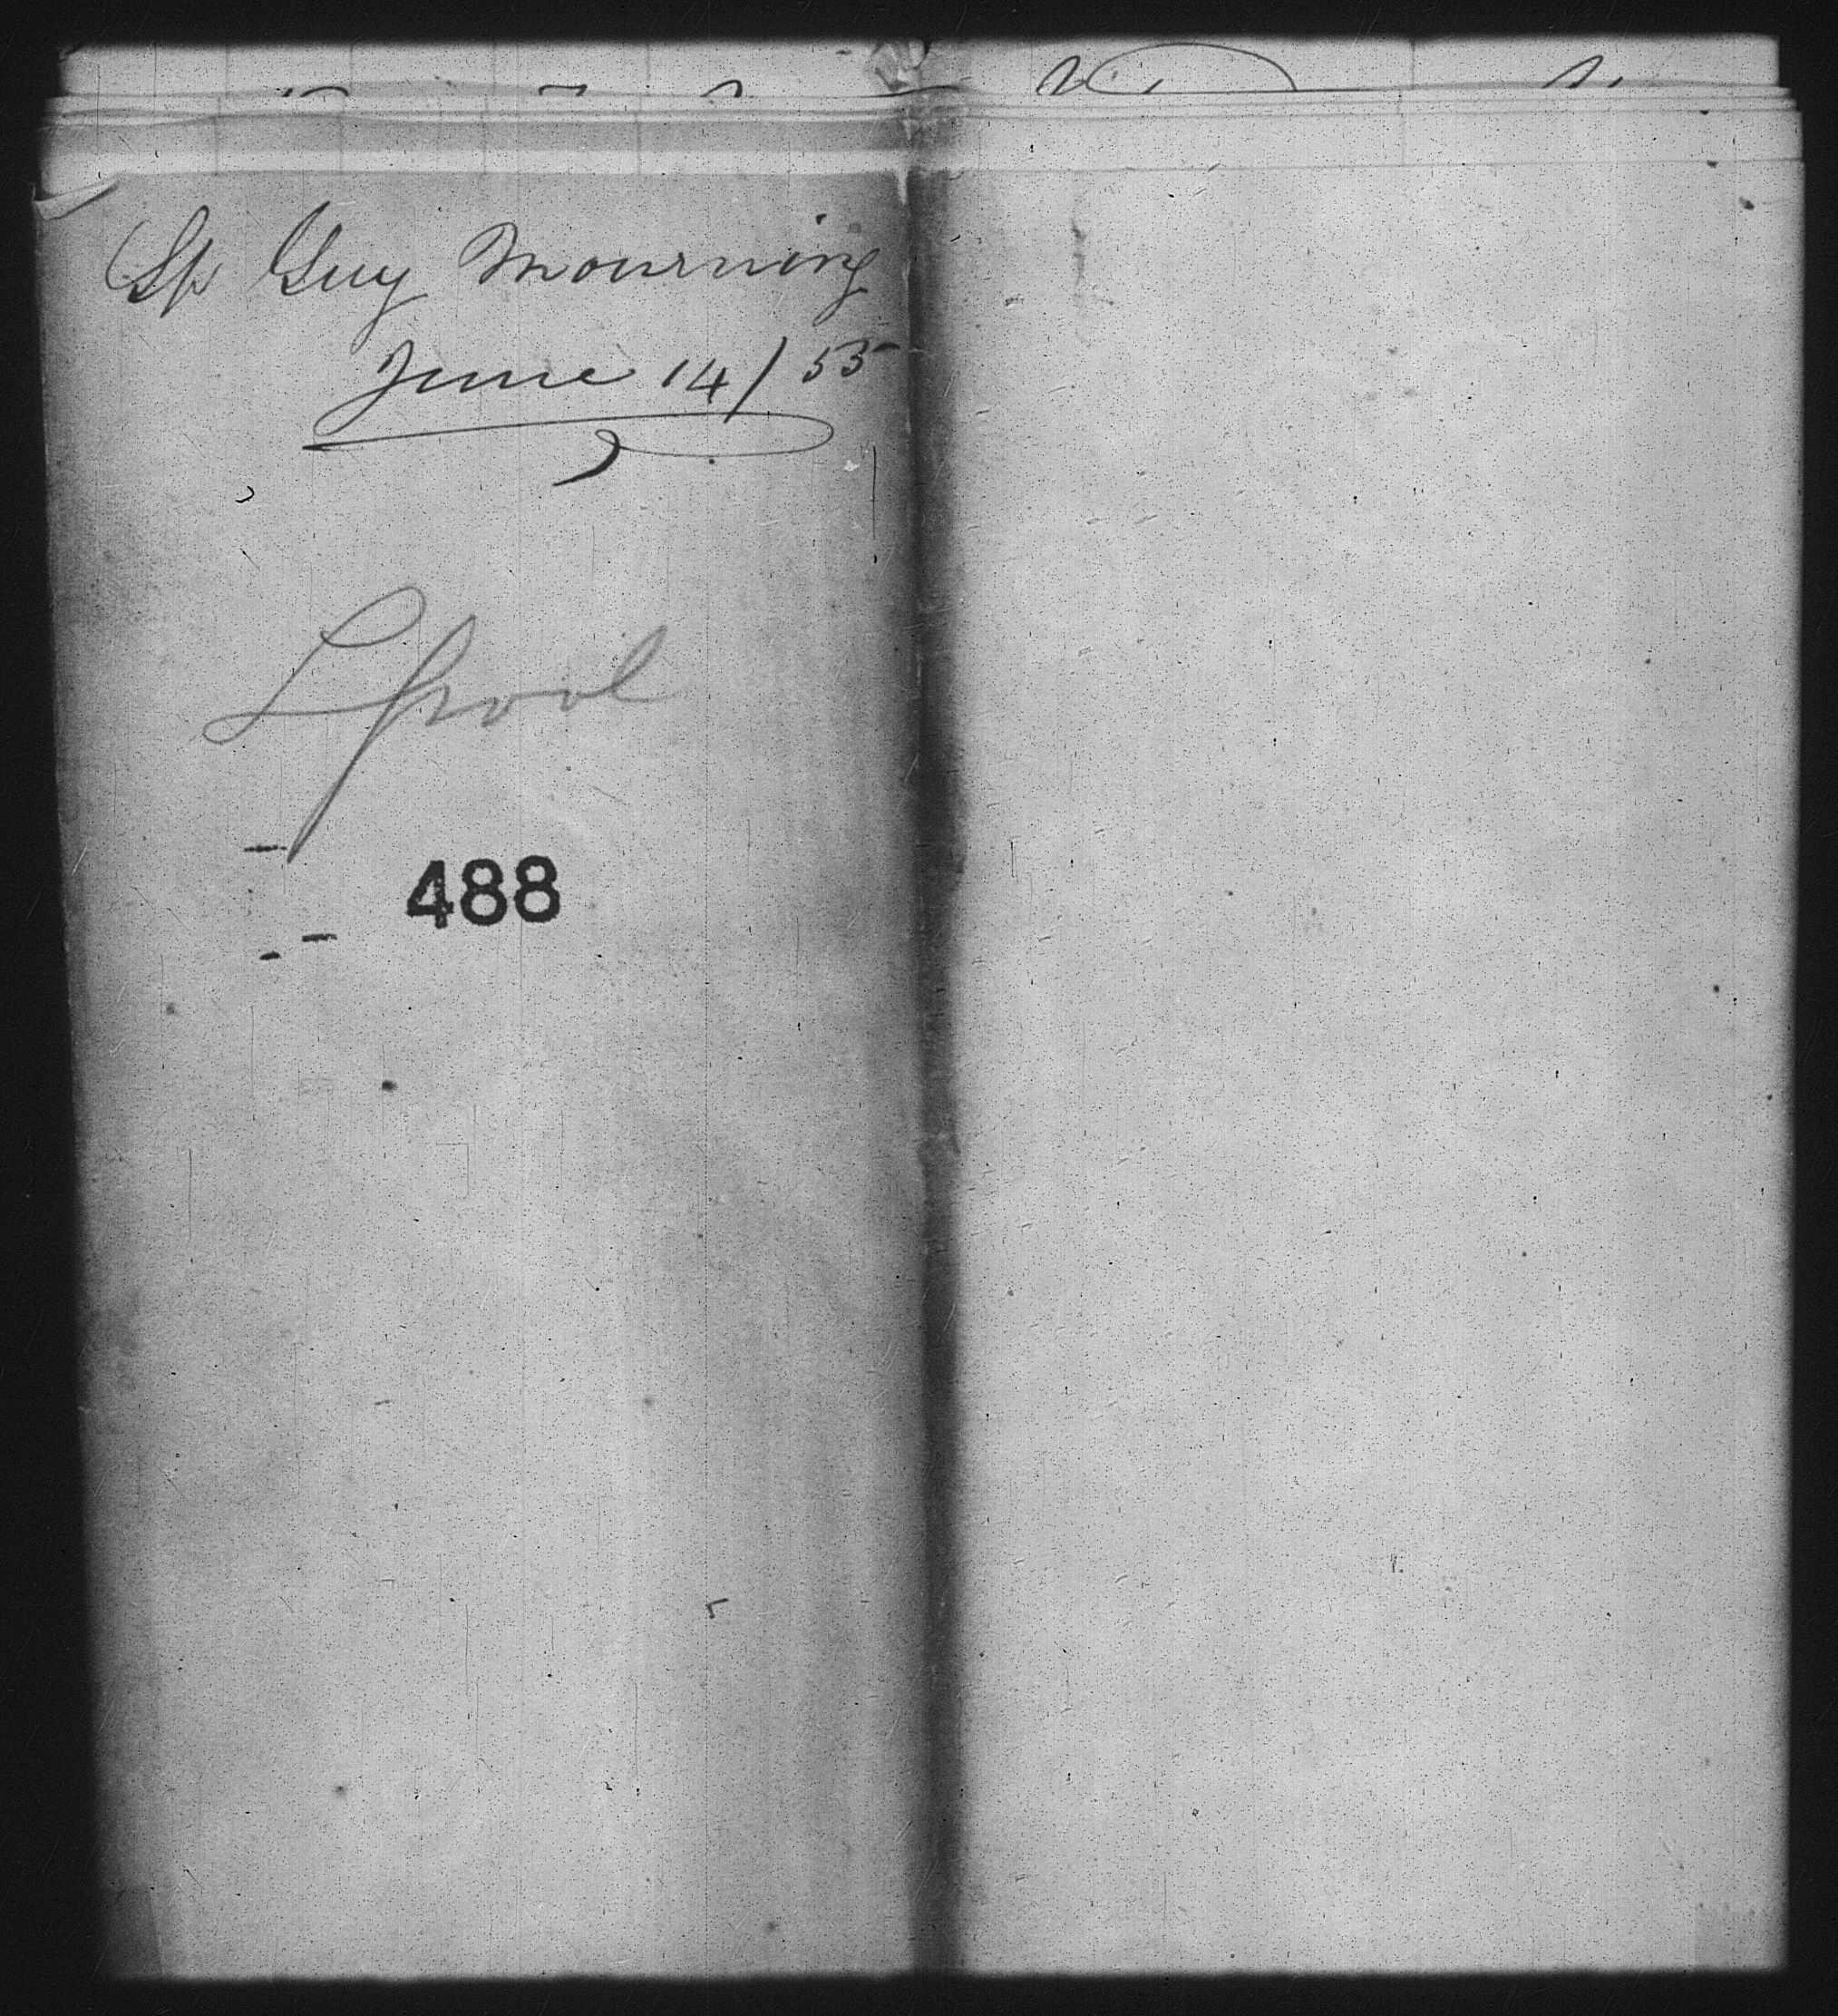 Sp Guy Mourning
June 14/55
Lpool
488